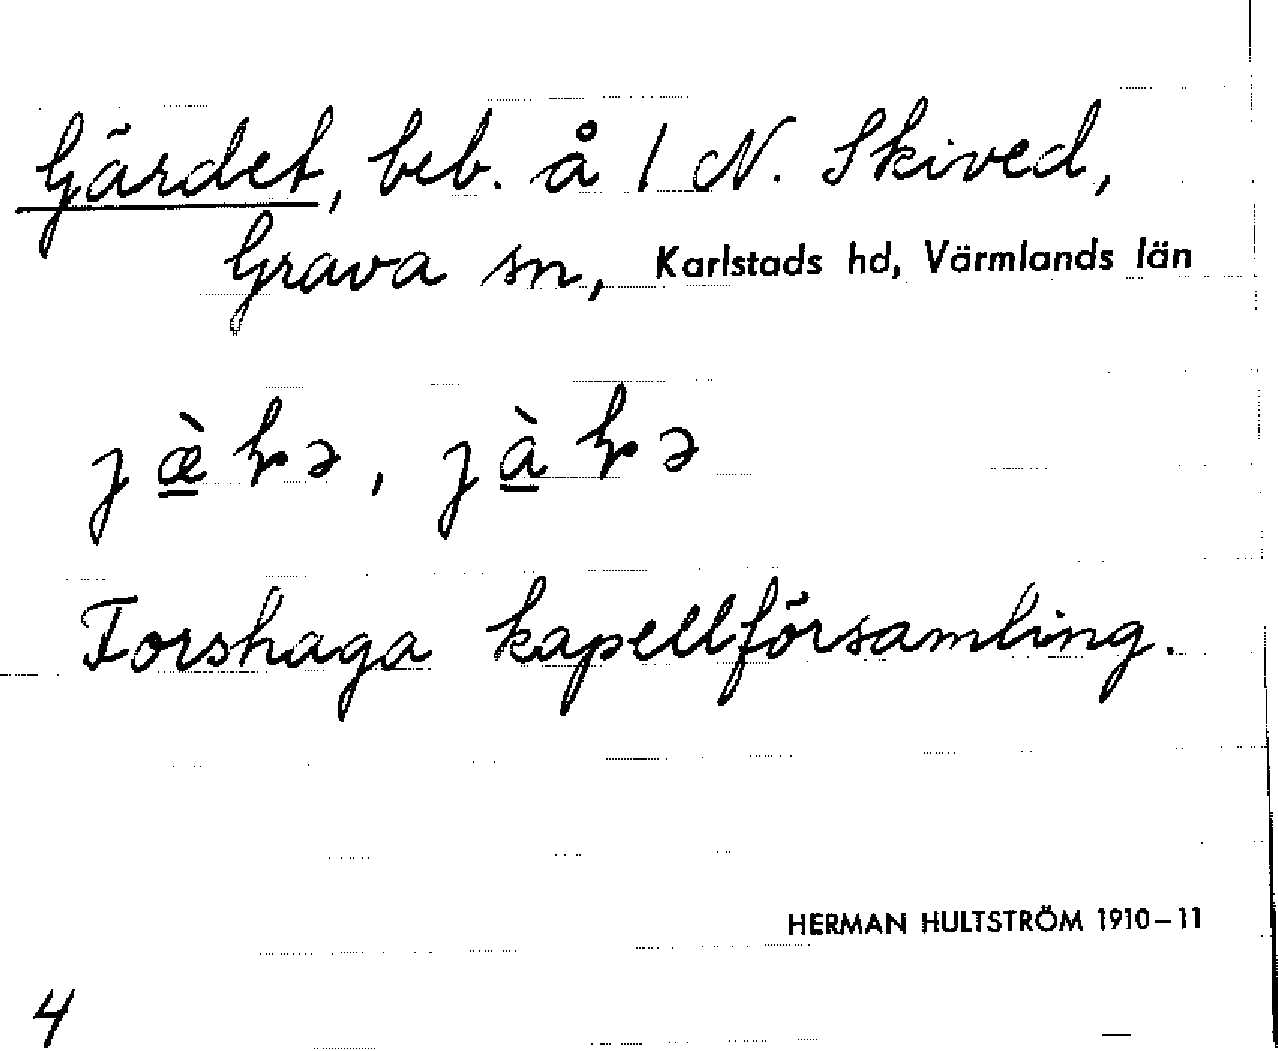 Gärdet, beb. å 1 N. Skived,
Grava sn, Karlstads hd, Värmlands län
Forshaga kapellförsamling.
HERMAN HULTSTRÖM 1910–11
4